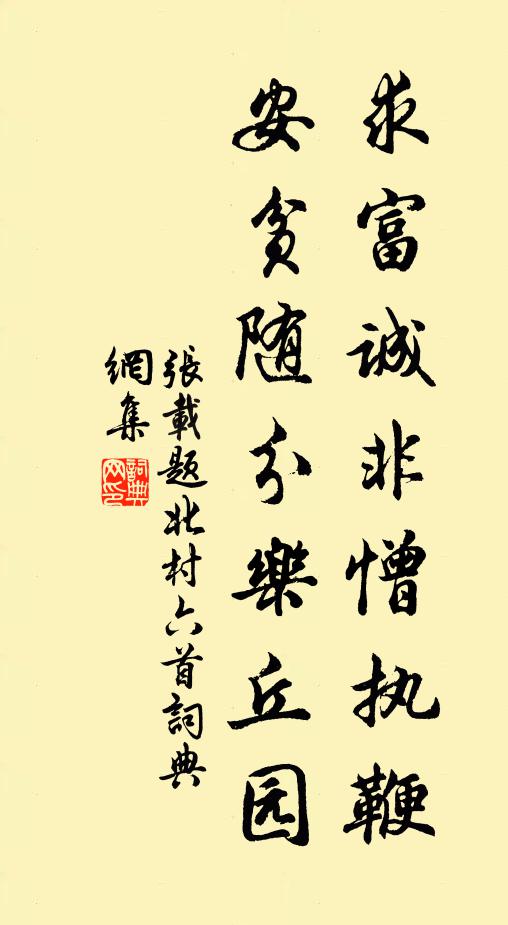 求富诚非憎执鞭
安贫随分樂丘园
張載题北村六首詞典
網集
詞典网印